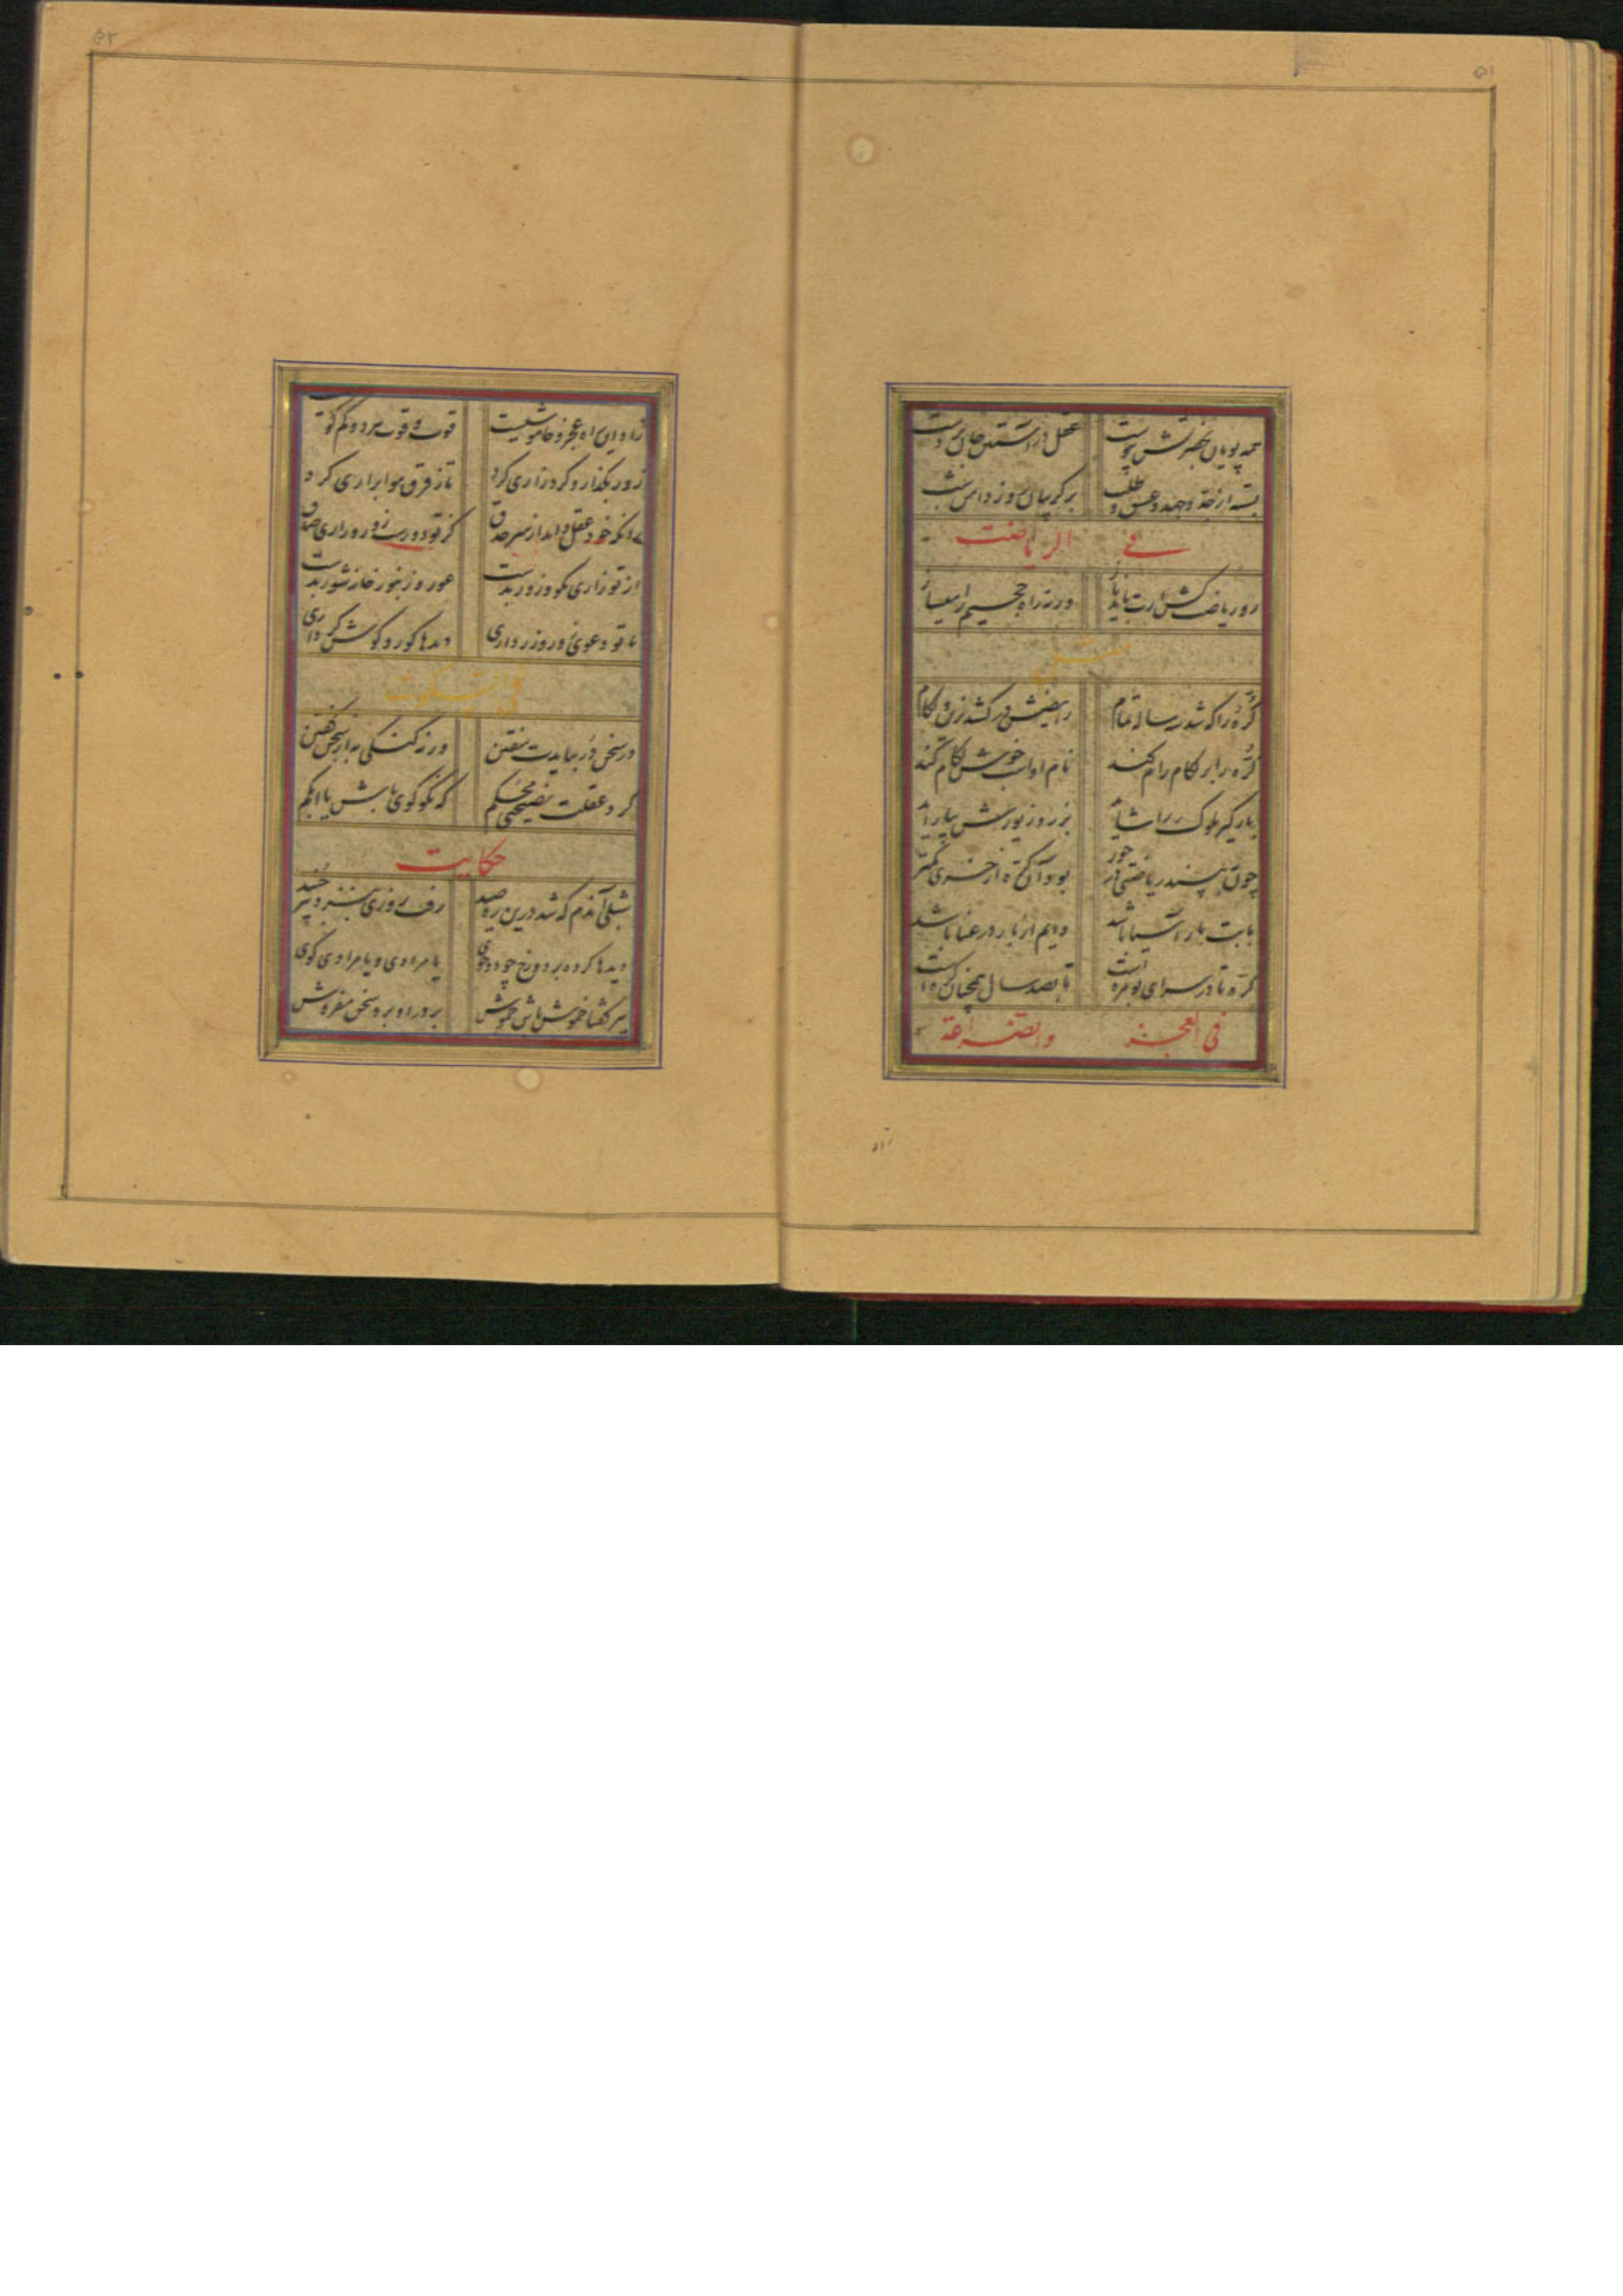 ۵۱
همه پویان بحضرتش پیوست عقل در آستین جان بر دست
بسته از جد و جهد و عشق و طلب بر گریبان روز دامن شب
فی الریاضت
رو ریاضت کش ارت باید باز ورنه راه جحیم را میساز
مثل
کره را که شد سه ساله تمام رایضش در کشد بزین و لگام
کره را بر لگام رام کند نام او اسب خوش لگام کند
بارگیر ملوک را شاید بزر و زیورش بیاراید
چون نبیند ریاضتی در خور بود آن کره از خری کمتر
بابت بار آسیا باشد دایم از بار در عنا باشد
کره تا در سرای بومره است تا بصد سال همچنان کره است
فی العجز والضراعة
زاد
۵۲
زاد این راه عجز و خاموشیست قوت و قوت مرد
زور بگذار و گرد زاری گرد تا ز فرق هوا براری گرد
آنکه خود عقل داند از سر حذق کز تو زور
از تو زاری نکو و زور بدست عور زنبور خانه شور بدست
تا تو دعوی زور و زر داری دیدها کور و گوش کر داری
فی السکوت
در سخن در ببایدت سفتن ورنه گنگی به از سخن گفتن
کرد عقلت نصیحتی محکم که نکوگوی باش یا ابکم
حکایت
شبلی آندم که شد درین ره صید رفت روزی بنزد پیر جنید
دیدها کرده بر دو رخ چو دو جوی یا مرادی و یا مرادی گوی
پیر گفتا خموش باش خموش بر در او برو سخن مفروش